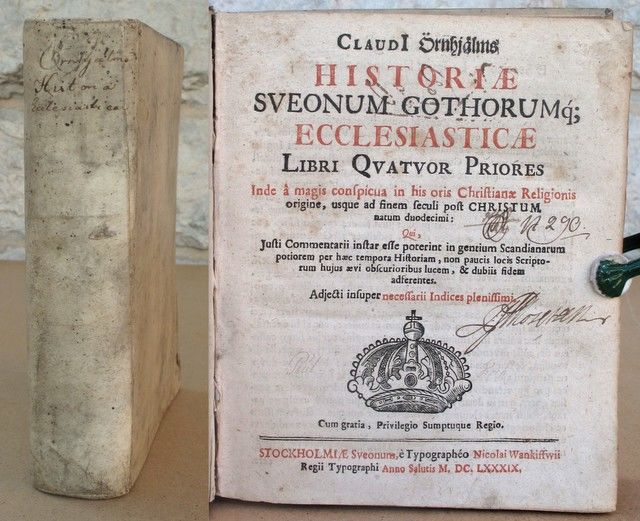 Örnhjälms
Historia
Ecclesiastica
CLAUDI Örnhjälms
HISTORIÆ
SVEONUM GOTHORUMq́;
ECCLESIASTICÆ
LIBRI QVATVOR PRIORES
Inde â magis conspicua in his oris Christianæ Religionis
origine, usque ad finem seculi post CHRISTUM
natum duodecimi:
N 290
Qui,
Justi Commentarii instar esse poterint in gentium Scandianarum
potiorem per hæc tempora Historiam, non paucis locis Scripto-
rum hujus ævi obscurioribus lucem, & dubiis fidem
adferentes.
Adjecti insuper necessarii Indices plenissimi.
Cum gratia, Privilegio Sumptuque Regio.
STOCKHOLMIÆ Sveonum, è Typographéo Nicolai Wankiffwii
Regii Typographi Anno Salutis M. DC. LXXXIX.